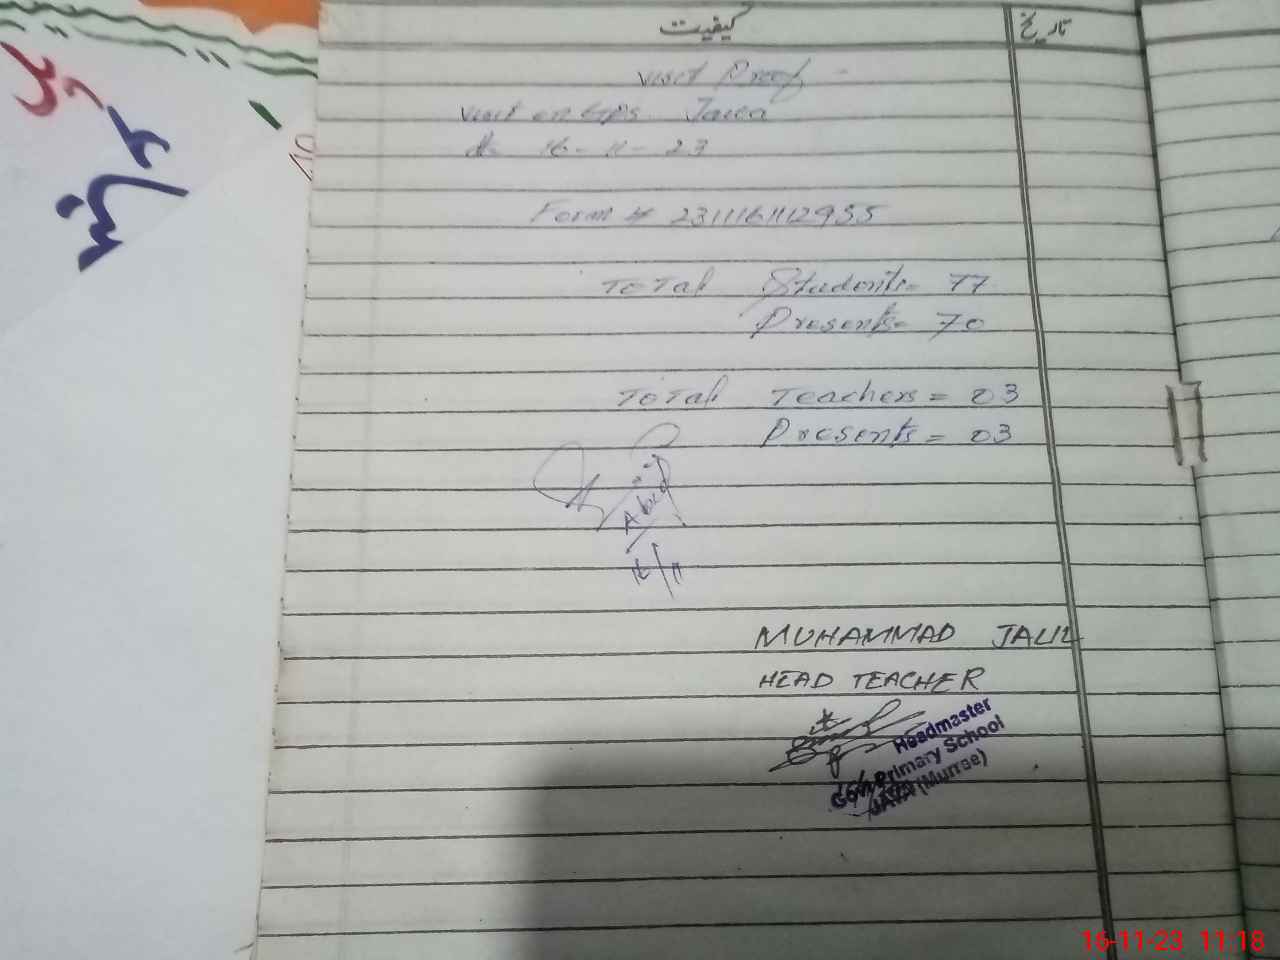 کیفیت
تاریخ
Visit Proof -
Visit on GPS Jawa
dt. 16-11-23
Form # 231116112955
Total Students = 77
Presents = 70
Total Teachers = 03
Presents = 03
Abid
16/11
MUHAMMAD JALIL
HEAD TEACHER
Headmaster
Govt Primary School
JAVA (Murree)
16-11-23 11:18